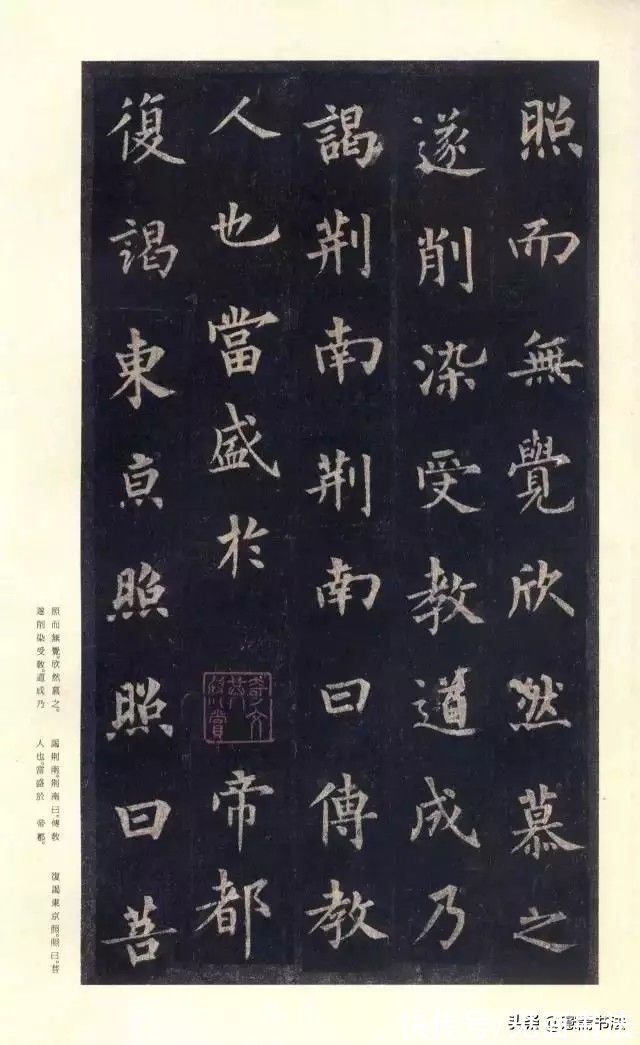 照而無覺欣然慕之
遂削染受教道成乃
謁荆南荆南曰傳教
人也當盛於帝都
復謁東京照照曰菩
奇文
賞
照而無覺。欣然慕之。
遂削染受教。道成乃
謁荆南。荆南曰。傳教
人也。當盛於 帝都。
復謁東京照。照曰。菩
头条@邃書书法